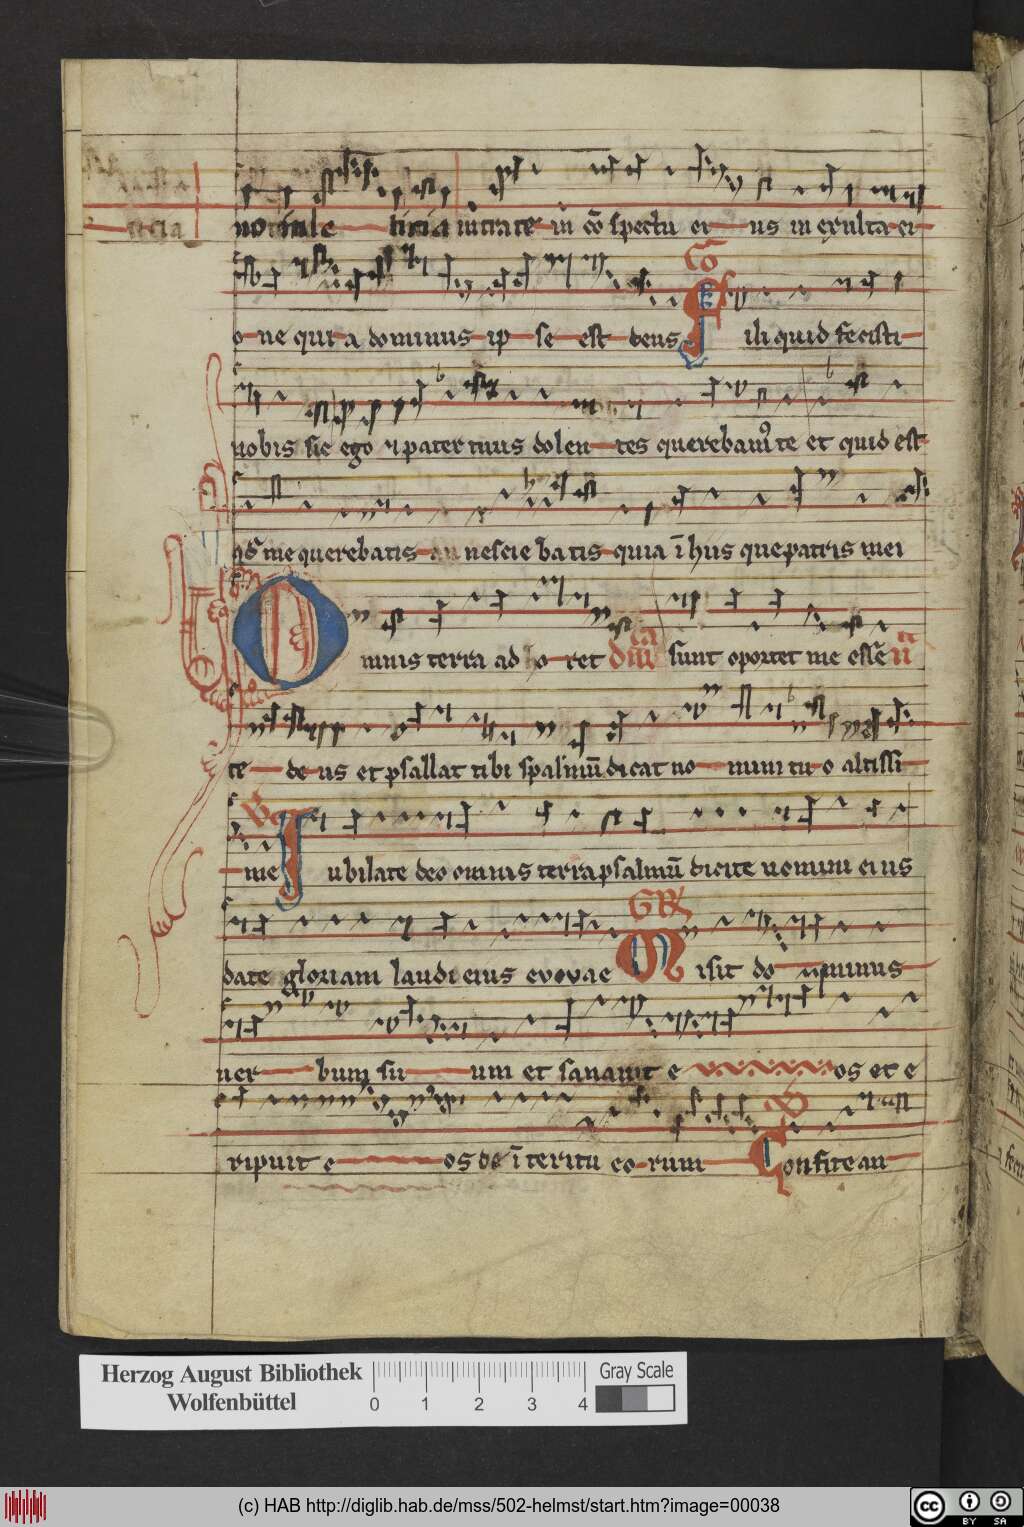 no in le ticia intrate in cō spectu ei us in exulta ci
Co
o ne qui a dominus ip se est deus Fili quid fecisti
nobis sic ego ⁊ pater tuus dolen tes querebamꝰ te et quid est
me querebatis an nescie ba tis quia ī hus que patris mei
Omnis terra ad o ret sunt oportet me esse
te de us et psallat tibi spalmū dicat no mini tu o altissi
me Jubilate deo omnis terra psalmū dicite nomini ei us
date gloriam laudi eius evovae GR Misit do minus
ver bum su um et sanavit e os et e
V
ripuit e os de ī teritu eo rum Confitean
Herzog August Bibliothek
Wolfenbüttel
0 1 2 3 4
Gray Scale
(c) HAB http://diglib.hab.de/mss/502-helmst/start.htm?image=00038
cc BY SA